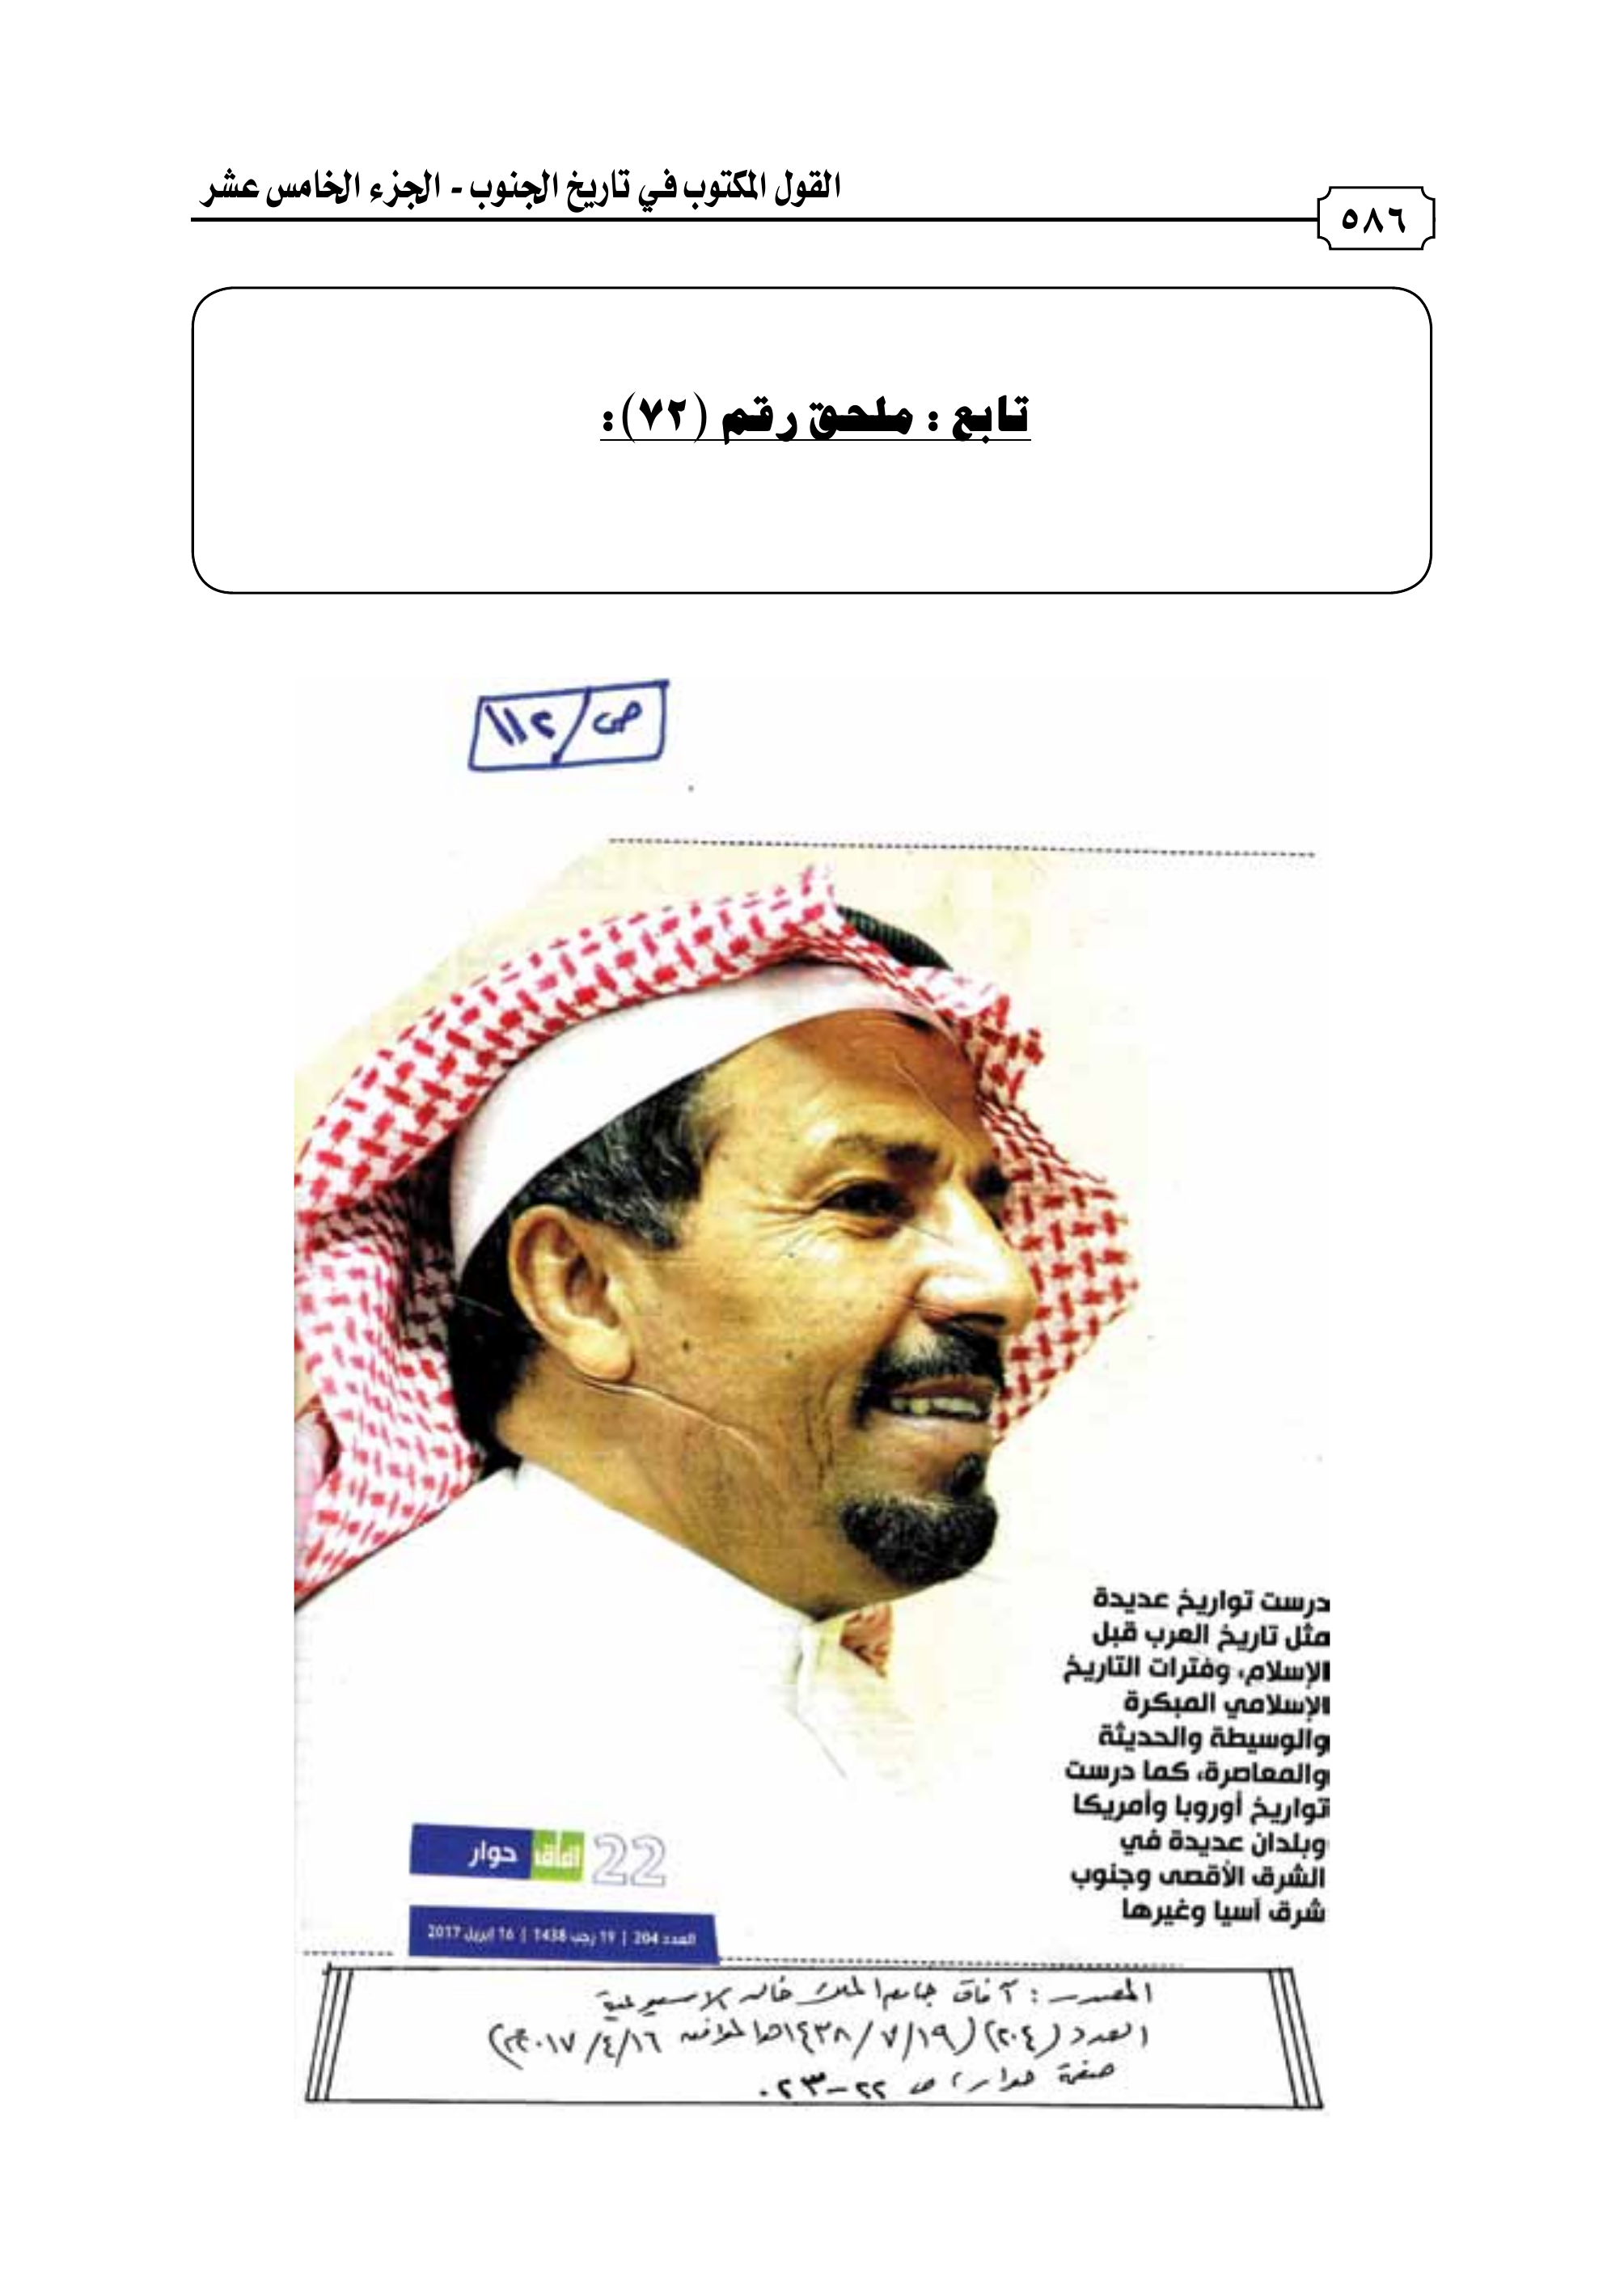 القول المكتوب في تاريخ الجنوب - الجزء الخامس عشر
٥٨٦
تابع : ملحق رقم (٧٢):
ص/١١٢
درست تواريخ عديدة
مثل تاريخ العرب قبل
الإسلام، وفترات التاريخ
الإسلامي المبكرة
والوسيطة والحديثة
والمعاصرة، كما درست
تواريخ أوروبا وأمريكا
وبلدان عديدة في
الشرق الأقصى وجنوب
شرق آسيا وغيرها
22 آفاق حوار
العدد 204 | 19 رجب 1438 | 16 ابريل 2017
المصدر : آفاق جامعة الملك خالد الاسبوعية
العدد (٢٠٤) (١٤٣٨/٧/١٩هـ الموافق ٢٠١٧/٤/١٦م)
صفحة حوار، ص ٢٢-٢٣.